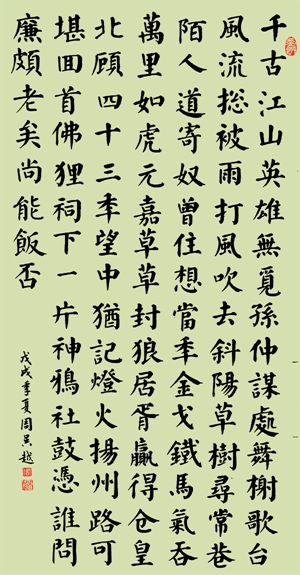 千古江山英雄無覓孫仲謀處舞榭歌台
風流総被雨打風吹去斜陽草樹尋常巷
陌人道寄奴曾住想當秊金戈鐵馬氣吞
萬里如虎元嘉草草封狼居胥贏得仓皇
北顧四十三秊望中猶記燈火揚州路可
堪囬首佛狸祠下一片神鴉社鼓憑誰問
廉頗老矣尚能飯否
戊戌季夏周吴越